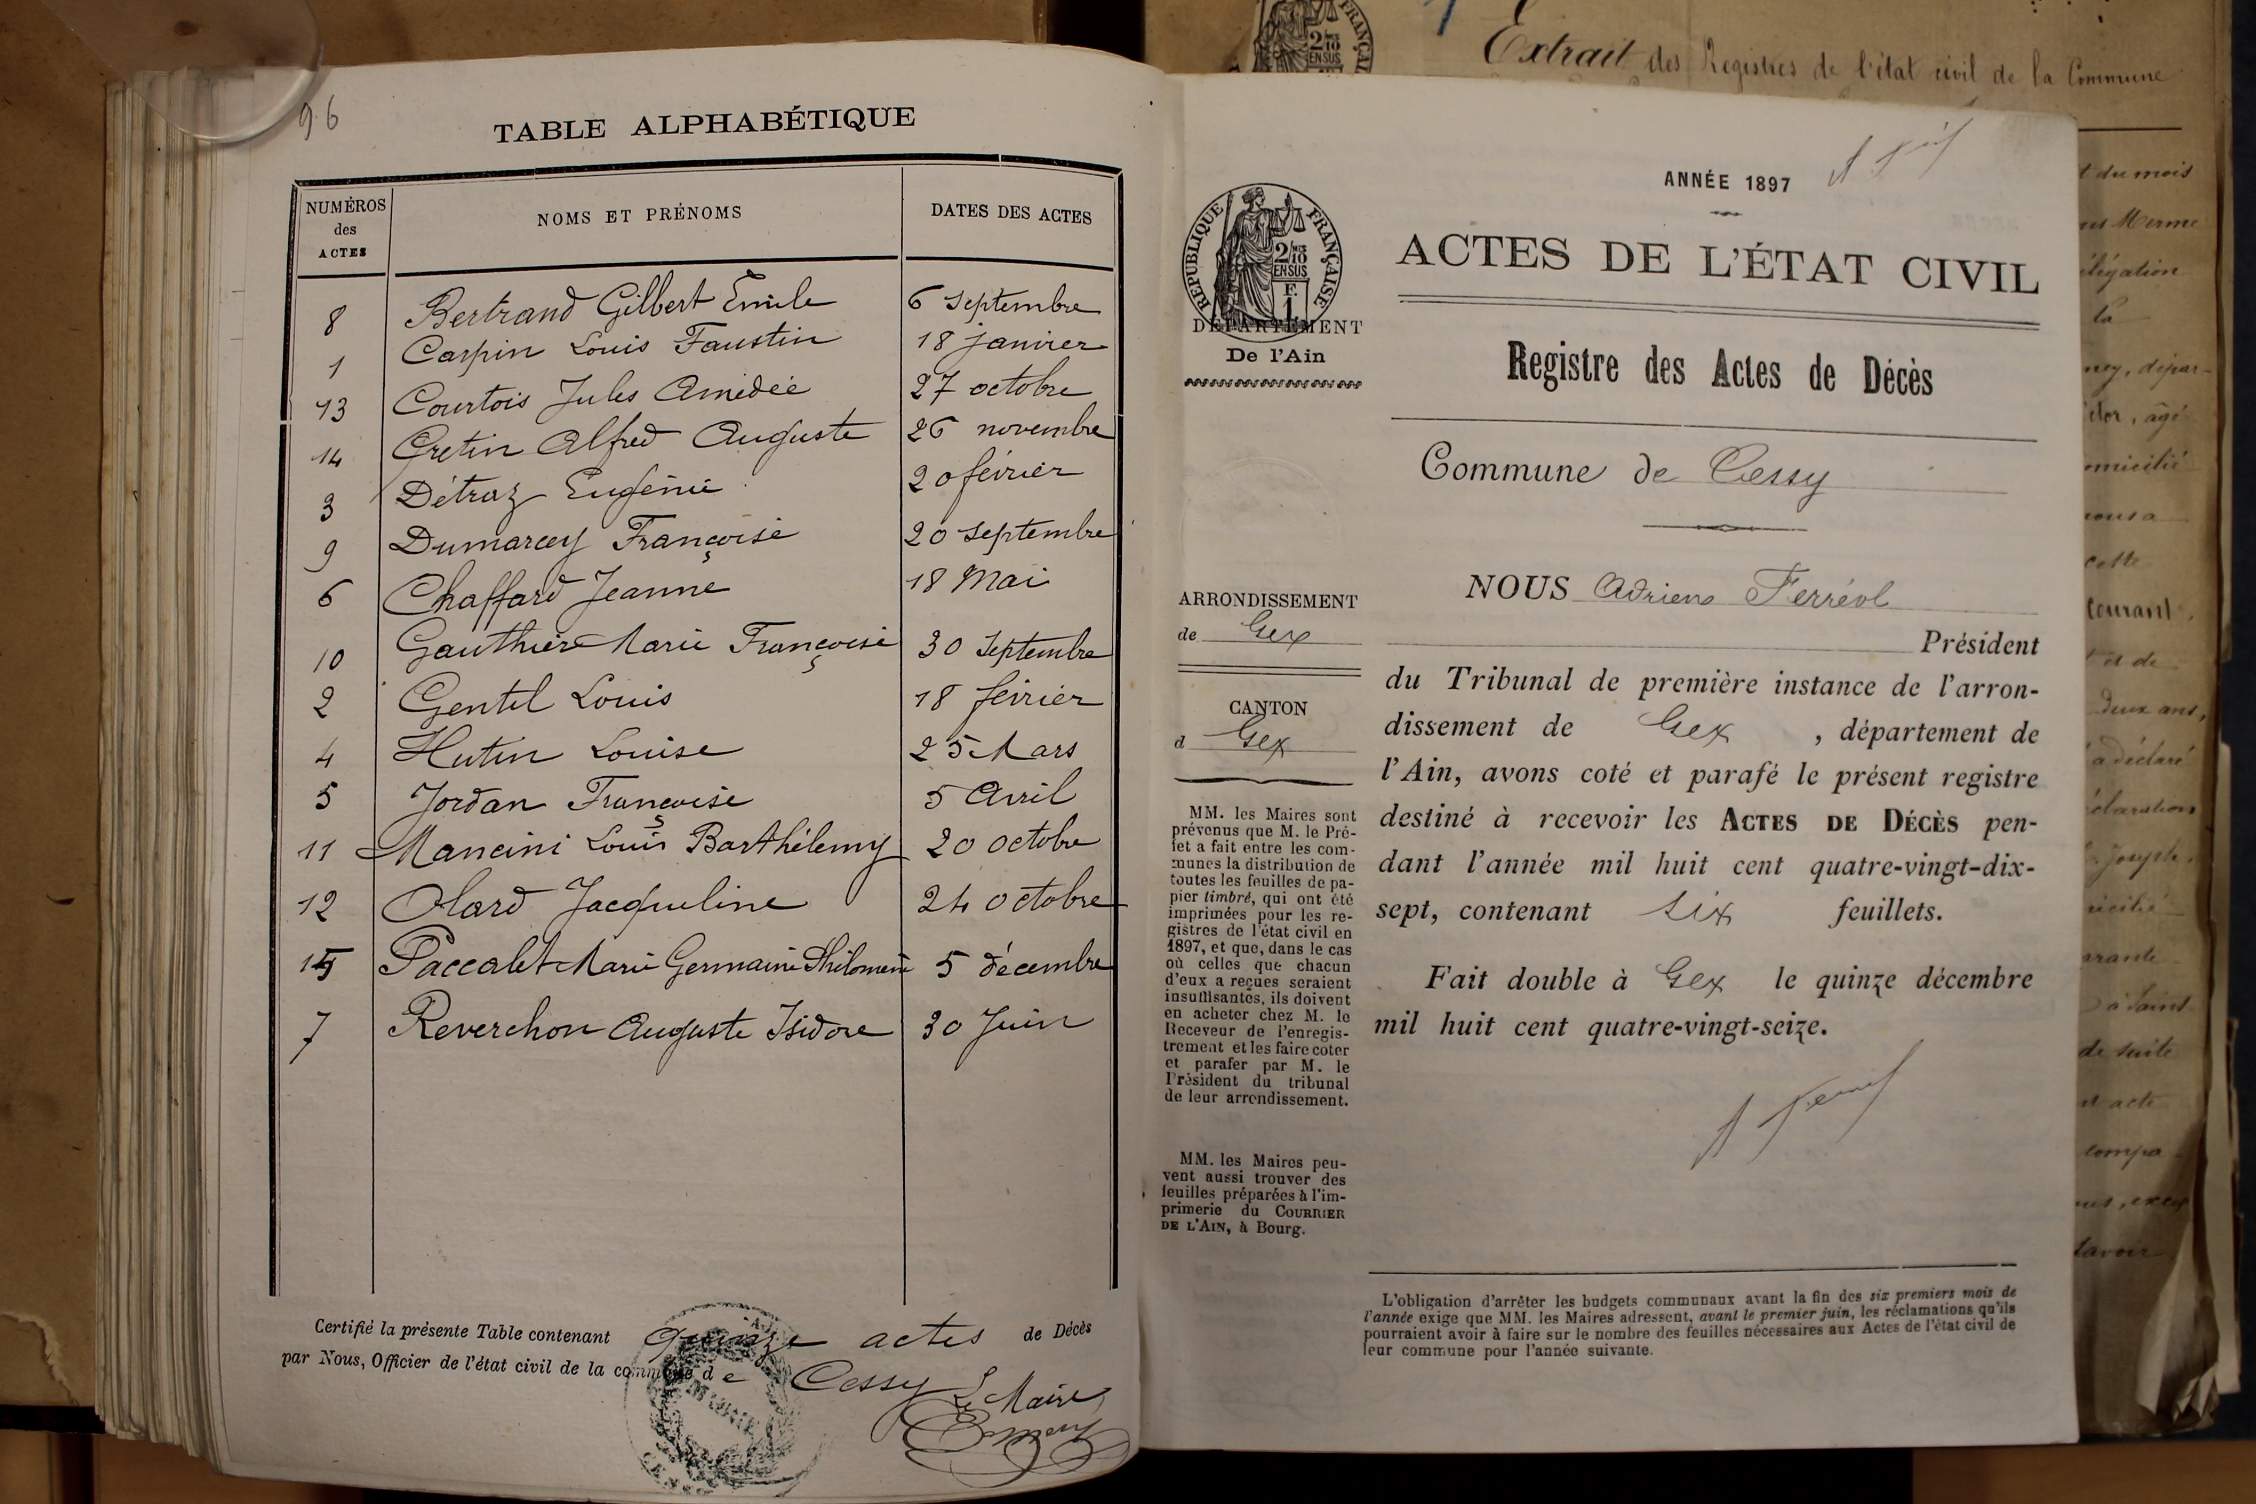 96
TABLE ALPHABÉTIQUE
NUMÉROS des ACTES
NOMS ET PRÉNOMS
DATES DES ACTES
8 Bertrand Gilbert Emile 6 septembre
1 Carpin Louis Faustin 18 janvier
13 Courtois Jules Amédée 27 octobre
14 Cretin Alfred Auguste 26 novembre
3 Détraz Eugénie 20 février
9 Dumarcey Françoise 20 septembre
6 Chaffard Jeanne 18 Mai
10 Gauthier Marie Françoise 30 septembre
2 Gentil Louis 18 février
4 Hutin Louise 25 Mars
5 Jordan Françoise 5 Avril
11 Mancini Louis Barthélemy 20 octobre
12 Olard Jacqueline 24 octobre
15 Paccalet Marie Germaine Philomène 5 décembre
7 Reverchon Auguste Isidore 30 Juin
Certifié la présente Table contenant quinze actes de Décès
par Nous, Officier de l'état civil de la commune de Cessy
Le Maire,
Extrait des Registres de l'état civil de la Commune
ANNÉE 1897
RÉPUBLIQUE FRANÇAISE
2/10 EN SUS
F. 1
DÉPARTEMENT
De l'Ain
ACTES DE L'ÉTAT CIVIL
Registre des Actes de Décès
Commune de Cessy
ARRONDISSEMENT
de Gex
CANTON
d Gex
MM. les Maires sont
prévenus que M. le Pré-
fet a fait entre les com-
munes la distribution de
toutes les feuilles de pa-
pier timbré, qui ont été
imprimées pour les re-
gistres de l'état civil en
1897, et que, dans le cas
où celles que chacun
d'eux a reçues seraient
insuffisantes, ils doivent
en acheter chez M. le
Receveur de l'enregis-
trement et les faire coter
et parafer par M. le
Président du tribunal
de leur arrondissement.
MM. les Maires peu-
vent aussi trouver des
feuilles préparées à l'im-
primerie du COURRIER
DE L'AIN, à Bourg.
NOUS Adrien Ferréol
Président
du Tribunal de première instance de l'arron-
dissement de Gex, département de
l'Ain, avons coté et parafé le présent registre
destiné à recevoir les ACTES DE DÉCÈS pen-
dant l'année mil huit cent quatre-vingt-dix-
sept, contenant six feuillets.
Fait double à Gex le quinze décembre
mil huit cent quatre-vingt-seize.
L'obligation d'arrêter les budgets communaux avant la fin des six premiers mois de
l'année exige que MM. les Maires adressent, avant le premier juin, les réclamations qu'ils
pourraient avoir à faire sur le nombre des feuilles nécessaires aux Actes de l'état civil de
leur commune pour l'année suivante.